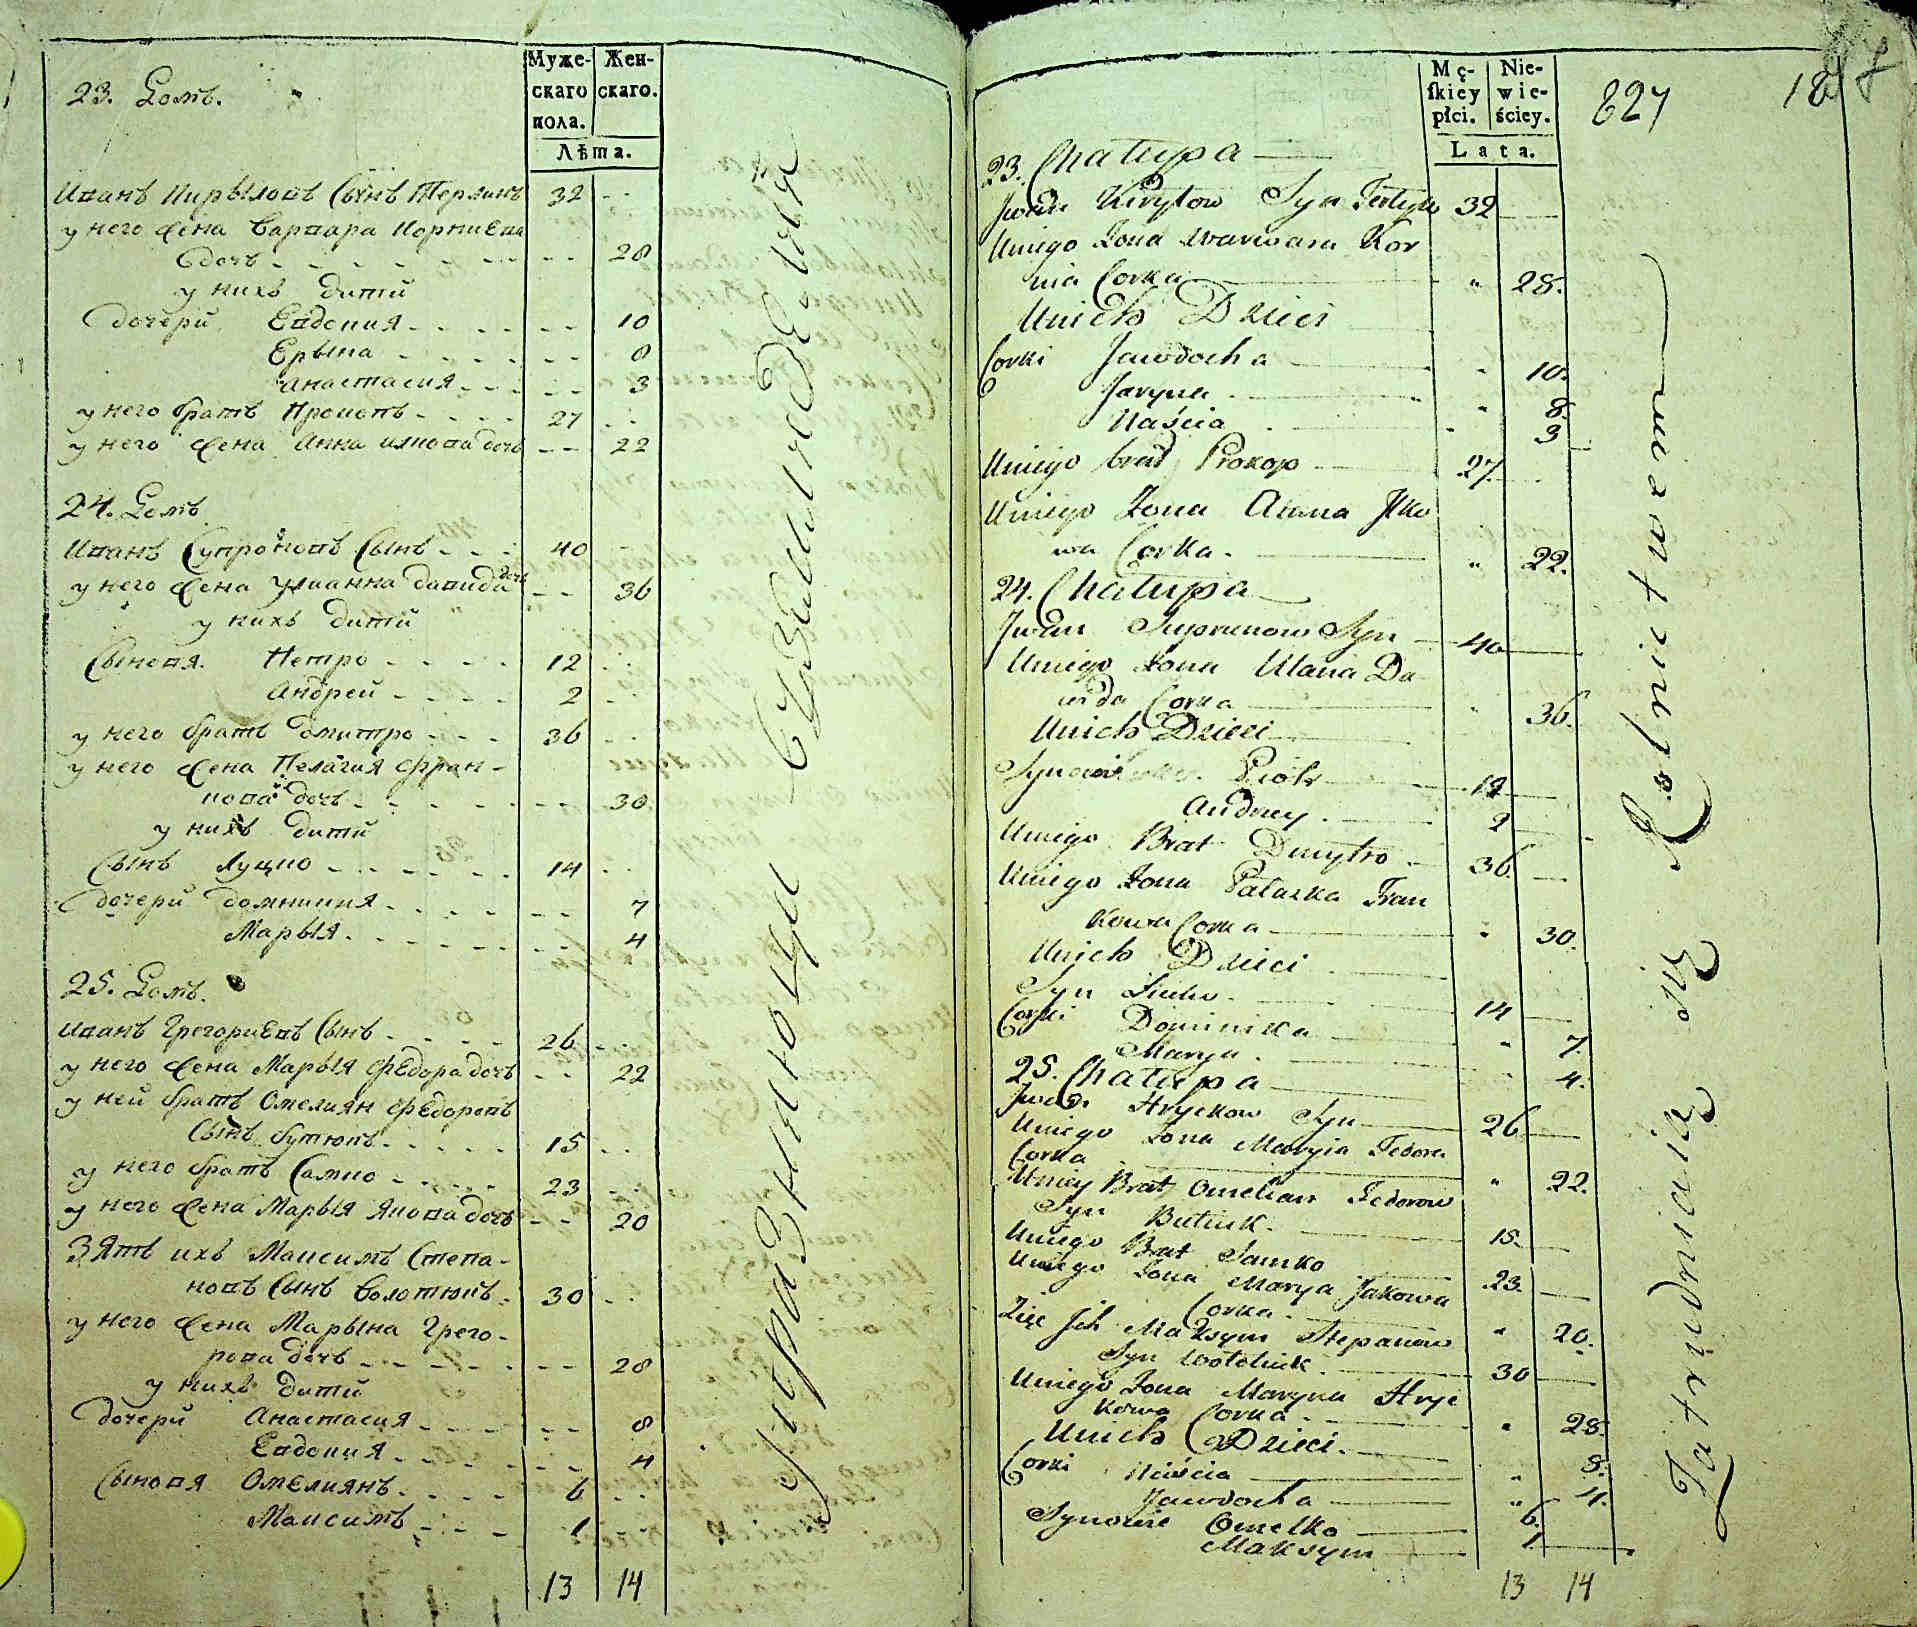 Муже-
скаго
пола.
Жен-
скаго.
Лѣта.
23. Домъ.
Иванъ Кирыловъ Сынъ Терликъ 32
у него Жена Варвара Корниева
дочь 28
у нихъ дити
дочери Евдокия 10
Ерына 8
Анастасия 3
у него братъ Прокопъ 27
у него Жена Анна илкова дочь 22
24. Домъ
Иванъ Супроновъ Сынъ 40
у него Жена Улианна давида дочь 36
у нихъ дити
Сыновя Петро 12
Андрей 2
у него братъ Дмитро 36
у него Жена Пелагия Фран-
кова дочь 30
у нихъ дити
Сынъ Луцко 14
дочери домникия 7
Марыя 4
25. Домъ.
Иванъ Грегориевъ Сынъ 26
у него Жена Марыя Федора дочь 22
у ней братъ Омелиян Федоровъ
Сынъ Бутюкъ 15
у него братъ Самко 23
у него Жена Марыя Якова дочь 20
Зять ихъ Максимъ Степа-
новъ Сынъ Волотюкъ 30
у него Жена Марына Грего-
рова дочь 28
у нихъ дити
дочери Анастасия 8
Евдокия 4
Сыновя Омелиянъ 6
Максимъ 1
13 14
Упражняющи Ся Земляделиемъ
Mę-
skiey
płci.
Nie-
wie-
ściey.
Lata.
827
18
23. Chałupa
Jwan Kiryłow Syn Tertyk 32
Uniego Zona Warwara Kor
nia Corka 28.
Unich Dzieci
Corki Jawdocha 10.
Jaryna 8.
Naścia 3
Uniego brat Prokop 27.
Uniego Zona Anna Jlko
wa Corka 22.
24. Chałupa
Jwan Suprunow Syn 40
Uniego Zona Ulana Da
wida Corka 36.
Unich Dzieci
Synowie Piotr 12
Andrey 2
Uniego Brat Dmytro 36.
Uniego Zona Pałaszka Fran
kowa Corka 30.
Unich Dzieci
Syn Łucko 14
Corki Dominika 7.
Marya 4.
25. Chałupa
Jwan Hryckow Syn 26
Uniego Zona Marya Fedora
Corka 22.
Uniey Brat Omelian Fedorow
Syn Butiuk 15.
Uniego Brat Samko 23.
Uniego Zona Marya Jakowa
Corka 20.
Zięć Jch Maksym Stepanow
Syn Wołotiuk 30
Uniego Zona Maryna Hryc
kowa Corka 28.
Unich Dzieci.
Corki Naścia 8.
Jawdocha 4.
Synowie Omelko 6.
Maksym 1.
13 14
Zatrudniaią się Rolnictwem